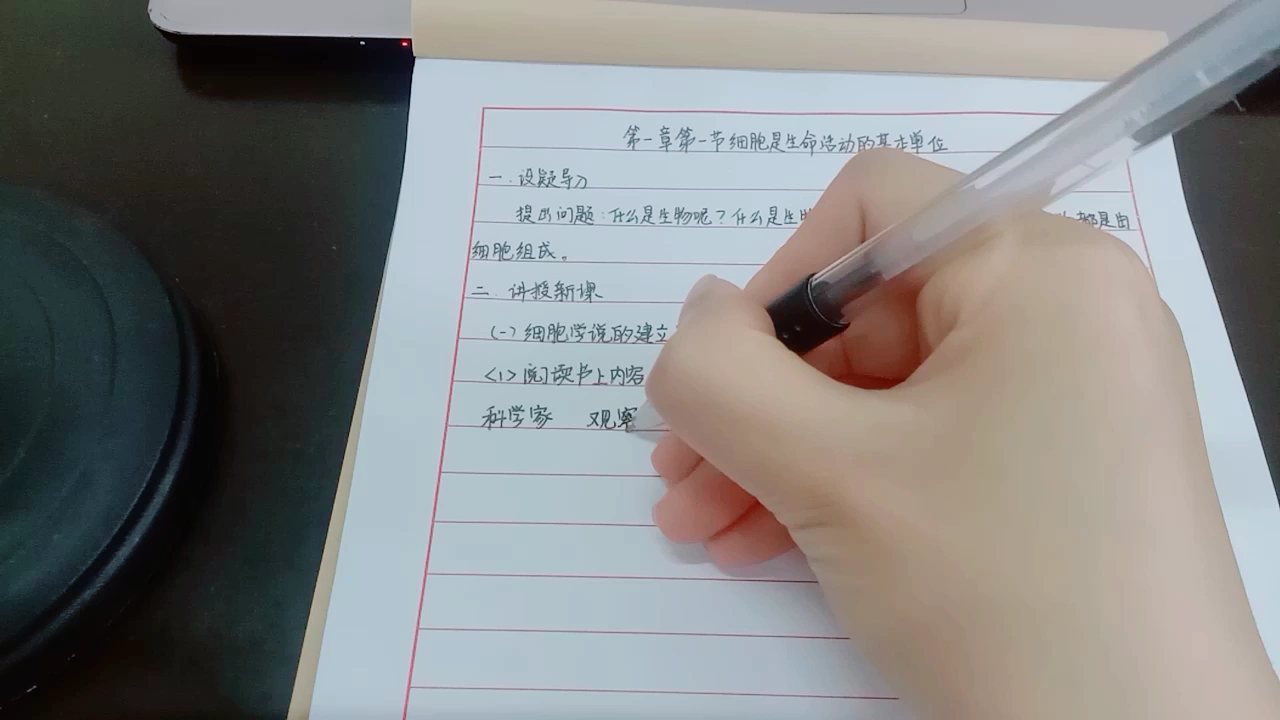 第一章第一节细胞是生命活动的基本单位
一.设疑导入
提出问题:什么是生物呢?什么是生 都是由
细胞组成。
二.讲授新课
(一)细胞学说的建立
<1>阅读书上内容
科学家 观察